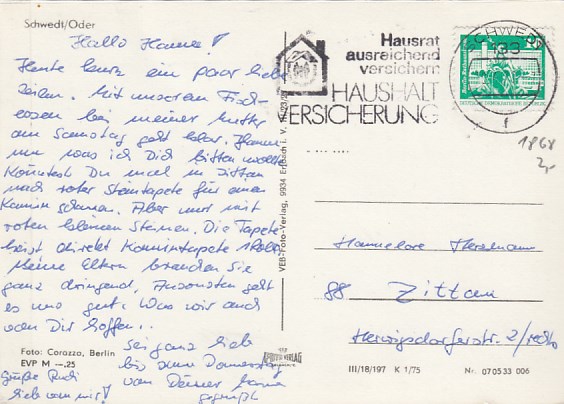 Schwedt/Oder
Hallo Hanne!
Heute kurz ein paar liebe
Zeilen. Mit unserem
essen bei meiner Mutter
am Samstag geht klar. Hanne
nun was ich Dich bitten wollte
Könntest Du mal in Zittau
nach roter Steintapete für einen
Kamin schauen. Aber nur mit
roten kleinen Steinen. Die Tapete
heißt direkt Kamintapete
Meine Eltern brauchen sie
ganz dringend. Ansonsten geht
es uns gut. Was wir auch
von Dir hoffen.
Sei ganz lieb
bis zum Donnerstag
von Deiner
gegrüßt
Foto: Corazza, Berlin
EVP M –.25
Grüße Rudi
lieb von mir!
VEB-Foto-Verlag, 9934 Erlbach i. V.
Hausrat
ausreichend
versichern
HAUSHALT
VERSICHERUNG
SCHWEDT
f
DEUTSCHE DEMOKRATISCHE REPUBLIK
1868
Hannelore
88 Zittau
Herwigsdorferstr. 2/
III/18/197 K 1/75
Nr. 07 05 33 006